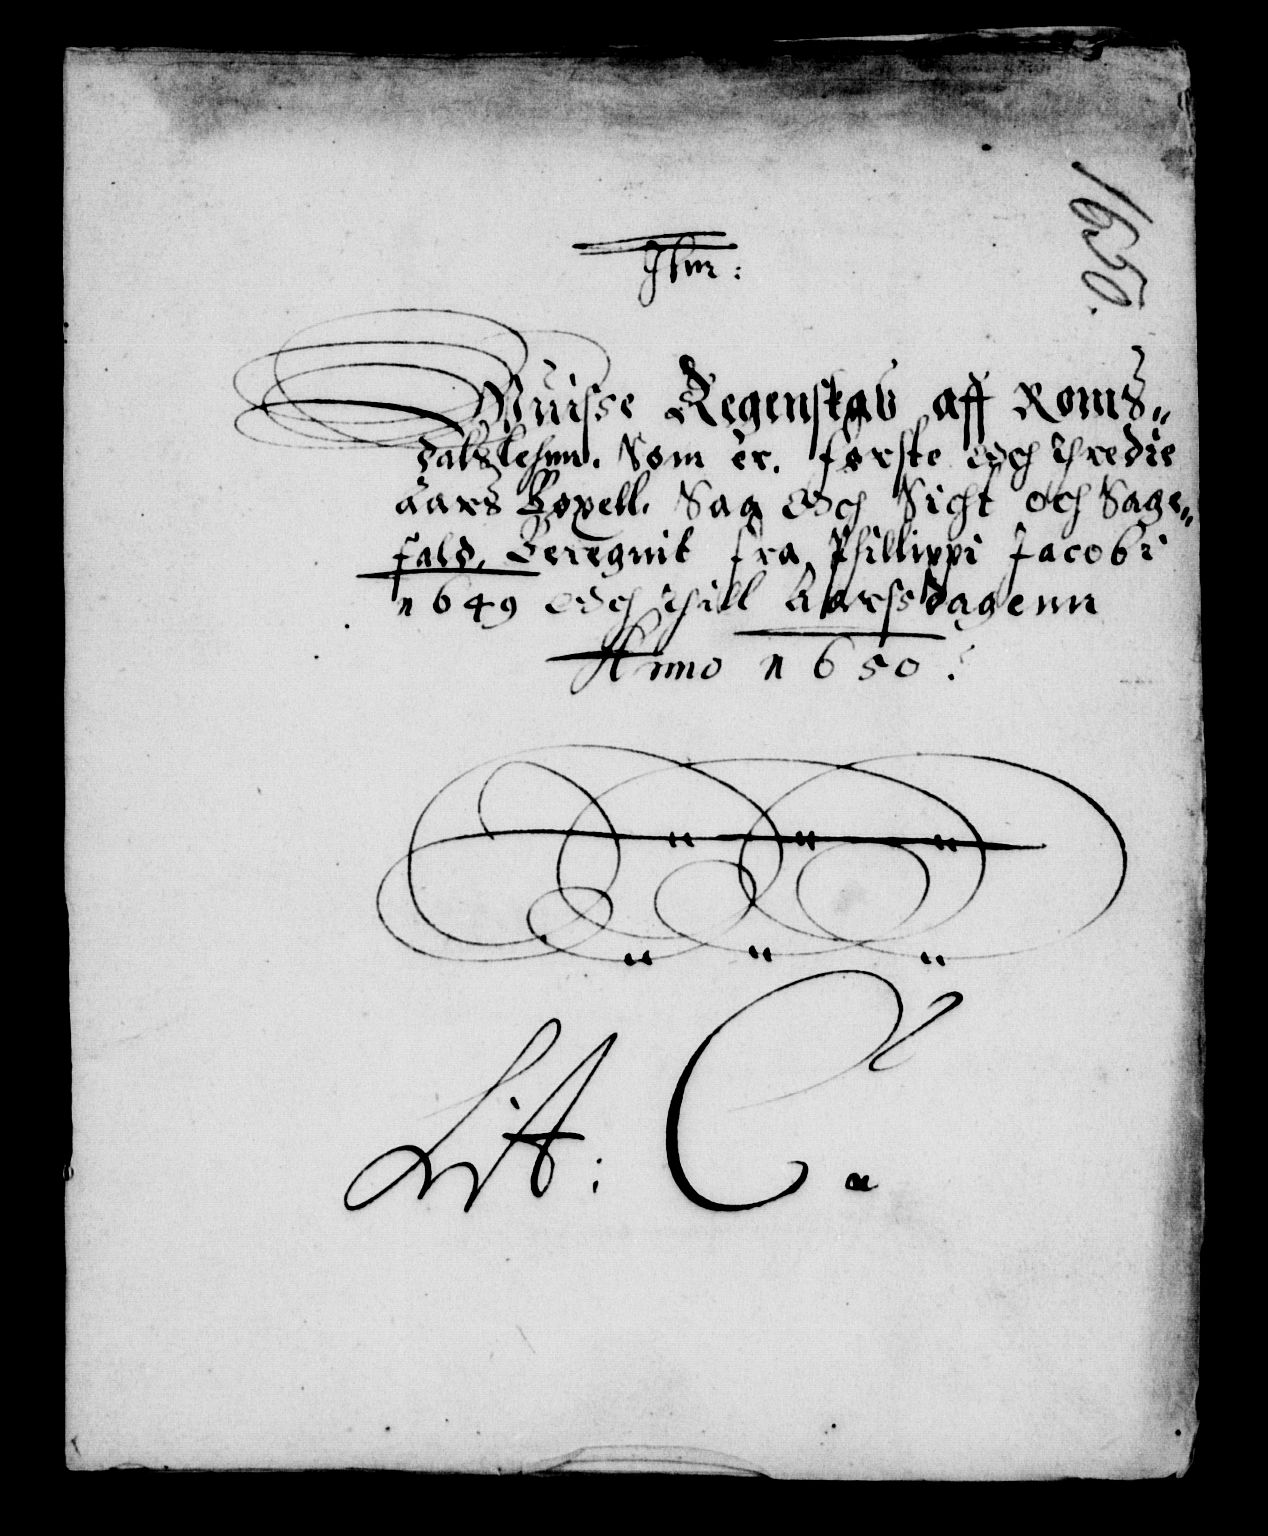 1650.
Wuisse Regenskab aff Roms„
dalslehnn. Som er. første och thredie
aars Bøxell. Sag och Sicht och Sage„
fald. Beregnit fra Phillippi Jacobi
1649 och thill Aarssdagenn
Anno 1650.
Lit: C.